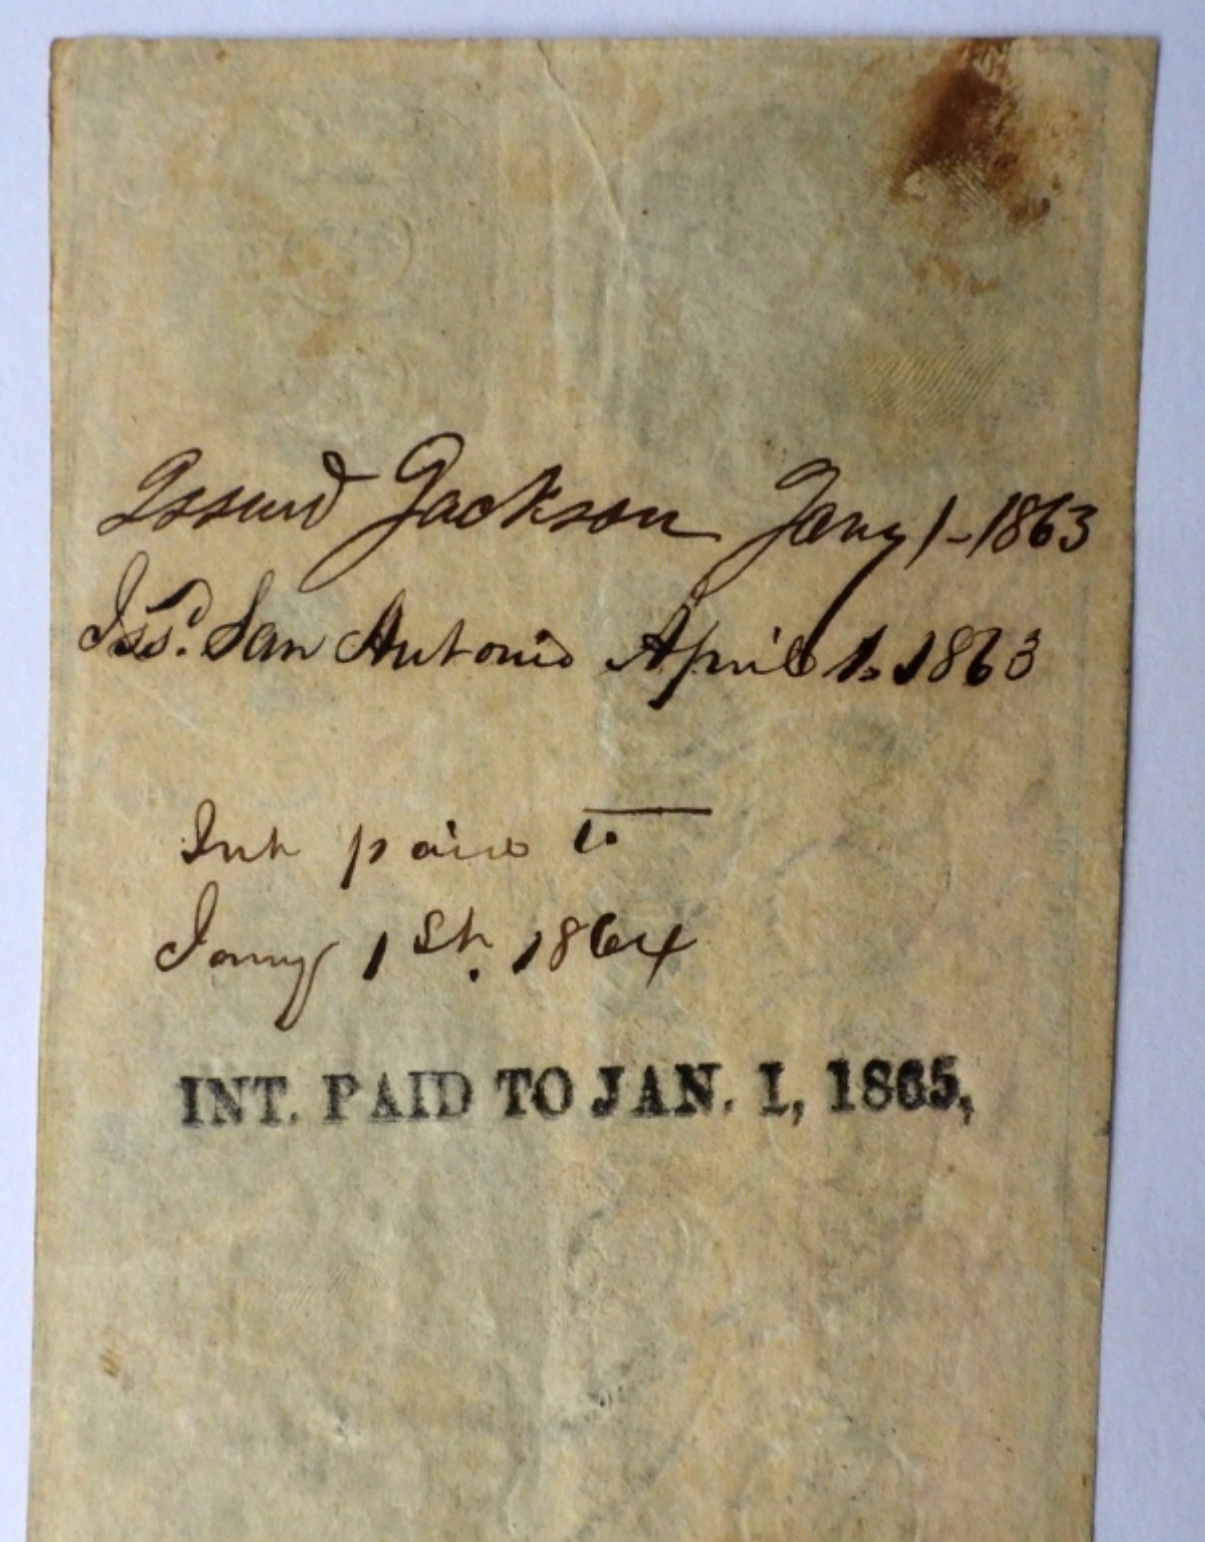 Issued Jackson Jany 1-1863
Issd. San Antonio April 1. 1863
Int paid to
Jany 1st. 1864
INT. PAID TO JAN. 1, 1865,